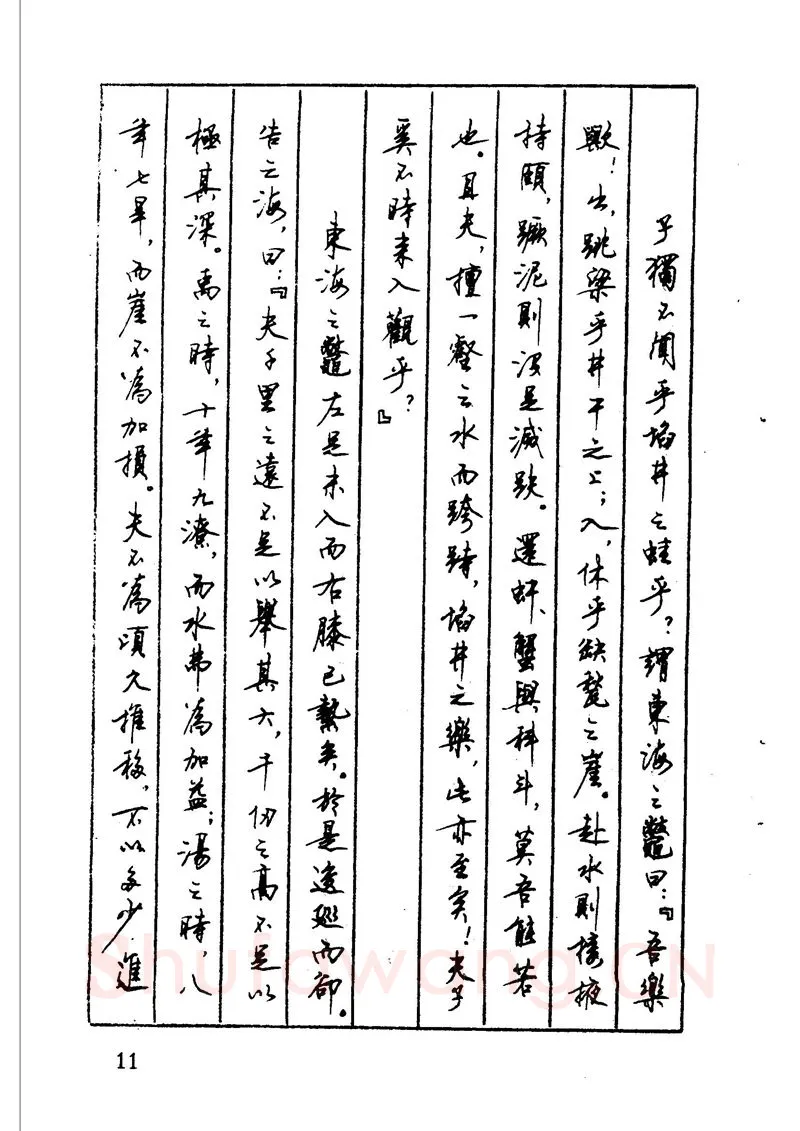 子獨不聞乎埳井之蛙乎?謂東海之鼈曰:『吾樂
歟!出,跳梁乎井干之上;入,休乎缺甃之崖。赴水則接掖
持頤,蹶泥則沒足滅跗。還虷、蟹與科斗,莫吾能若
也。且夫,擅一壑之水而跨跱,埳井之樂,此亦至矣!夫子
奚不時來入觀乎?』
東海之鼈左足未入而右膝已縶矣。於是逡巡而卻。
告之海,曰:『夫千里之遠不足以舉其大,千仞之高不足以
極其深。禹之時,十年九潦,而水弗為加益;湯之時,八
年七旱,而崖不為加損。夫不為頃久推移,不以多少進
11
Shufawang.CN